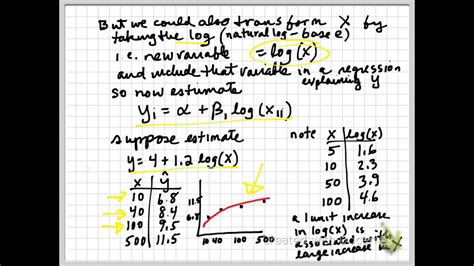 But we could also transform X by
taking the log (natural log - base e)
i.e. new variable = log(x)
and include that variable in a regression
explaining y
so now estimate
yi = α + β1 log(x1i)
suppose estimate
y = 4 + 1.2 log(x)
x ŷ
10 6.8
40 8.4
100 9.5
500 11.5
11.5
6.8
10 40 100 500
note
x log(x)
5 1.6
10 2.3
50 3.9
100 4.6
a 1 unit increase
in log(x) is
associated with
large increase in X